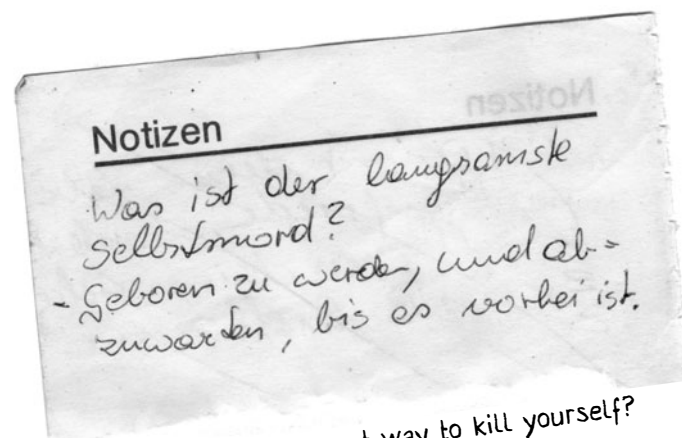 Notizen
Was ist der langsamste
Selbstmord?
- Geboren zu werden, und ab-
zuwarten, bis es vorbei ist.
way to kill yourself?